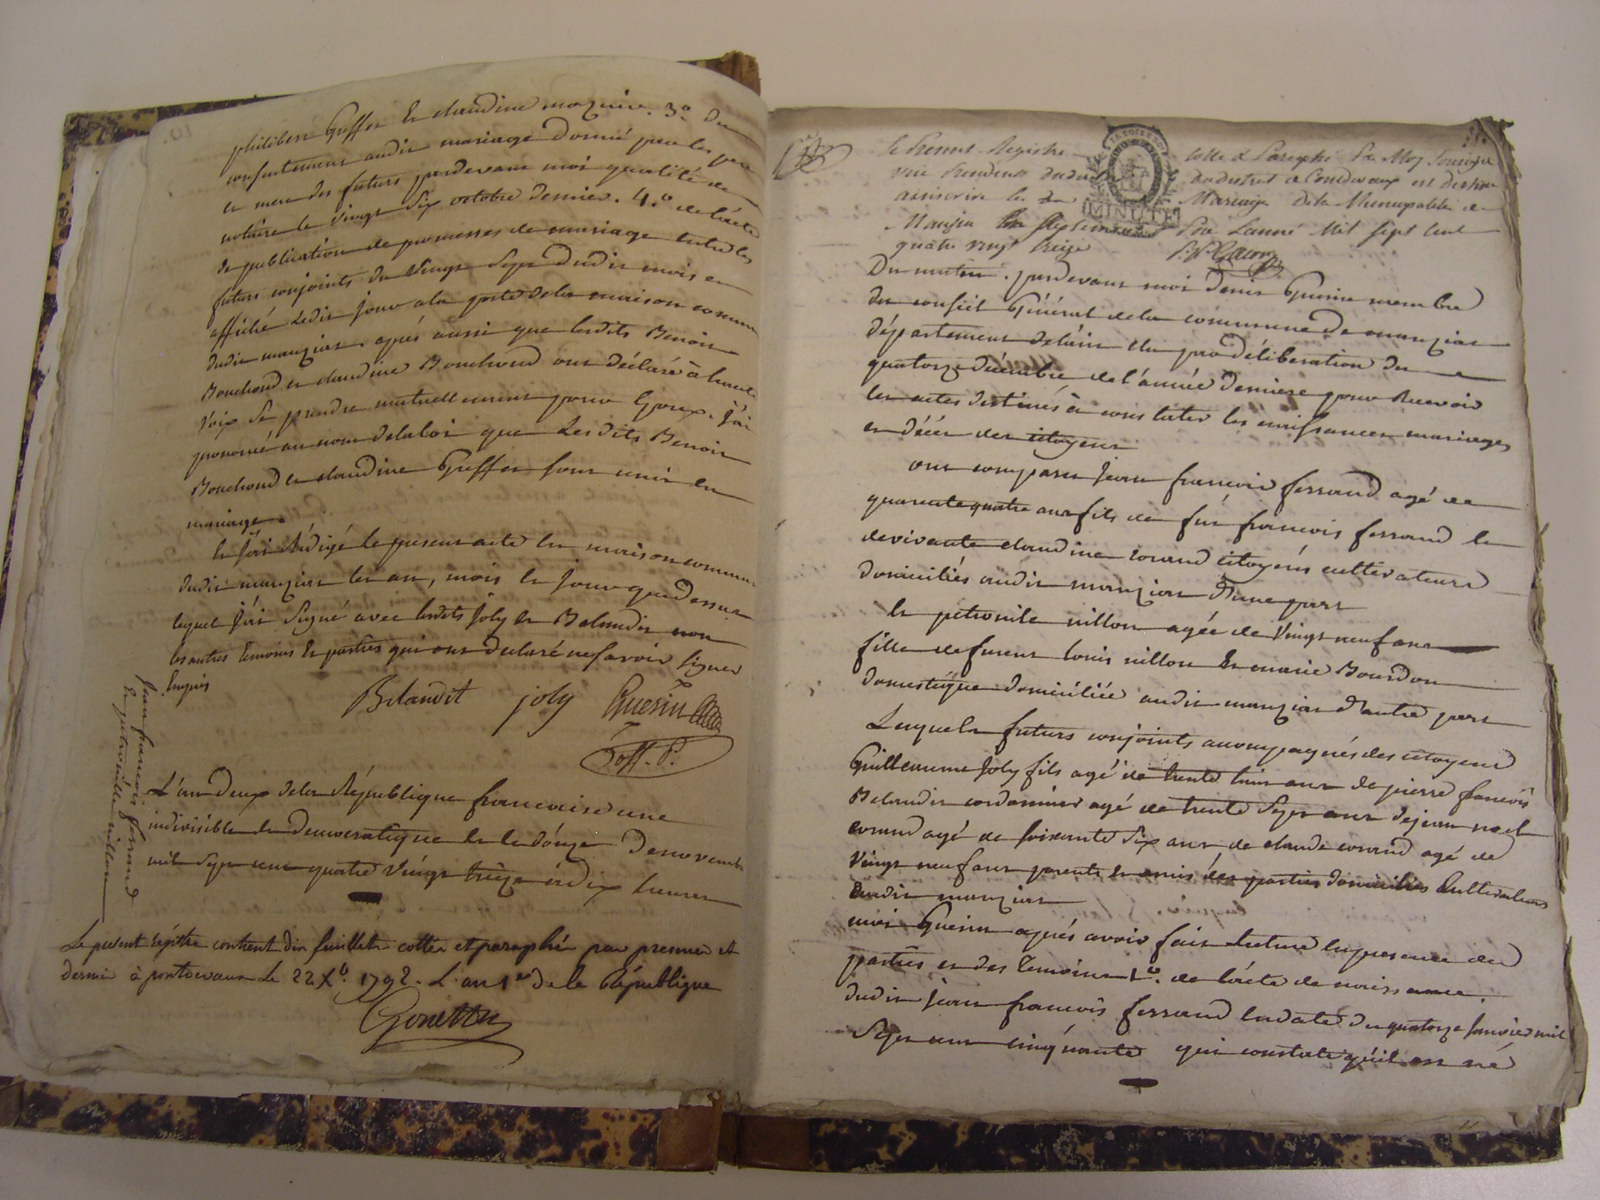 philibert Greffet Et claudine mazuir. 3.º du
consentement audit mariage donné par les pere
et mere des futurs pardevant moi qualité de
notaire le vingt six octobre dernier. 4.º de l'acte
de publication de promesses de mariage entre les
futurs conjoints du vingt sept dudit mois et
affiché ledit jour a la porte de la maison commune
dudit manziat. aprés aussi que lesdits Benoit
Bouchoud et claudine Bouchoud ont déclaré à haute
voix se prendre mutuellement pour Epoux. j'ai
prononcé au nom de la loi que lesdits Benoit
Bouchoud et claudine Greffet sont unis en
mariage.
Et j'ai Rédigé le present acte En maison commune
dudit manziat les an, mois et jour que dessus
lequel j'ai Signé avec lesdits Joly et Belaudit non
les autres témoins Et parties qui ont declaré ne savoir signer
Enquis
Belaudit joly Guerin
Soff. P.
jean francois ferrand
Et petronille nillon
L'an deux de la République francaise une
indivisible et democratique Et le douze de novembre
mil sept cent quatre vingt treize à dix heures
Le present régitre contient dix feuillets cottés et paraphé par premier et
dernier à pontdevaux Le 22 X.b 1792. L'an 1er de la République
Gonetta
le Present Registre cotté & Paraphé Par Moy
du district de Pontdevaux est destiné
a inscrire les Mariage de la Municipalité de
Manziat Pour Lanné Mil sept Cent
quatre vingt treize
MINUTE
Du matin. pardevant moi denis Guerin membre
du conseil Général de la commune de manziat
département de l'ain élu par délibération du
quatorze décembre de l'année derniere pour Recevoir
les actes destinés à constater les naissances mariages
et décès des citoyens
ont comparu jean francois ferrand agé de
quarante quatre ans fils de fût francois ferrand et
de vivante claudine corand citoyens cultivateurs
domiciliés audit manziat d'une part
Et petronile nillon agée de vingt neuf ans
fille de furent louis nillon Et marie Bourdon
domestique domiciliée audit manziat d'autre part
Lesquels futurs conjoints accompagnés des citoyens
Guilleaume Joly fils agé de trente huit ans de pierre francois
Belaudit cordonnier agé de trente sept ans de jean noel
corand agé de soixante six ans de claude corand agé de
vingt neuf ans parents et amis des parties domiciliés Cultivateurs
audit manziat
moi Guerin aprés avoir fait lecture En presence des
parties et des témoins 1.º de l'acte de naissance
dudit jean francois ferrand En date du quatorze janvier mil
sept cent cinquante qui constate qu'il est né